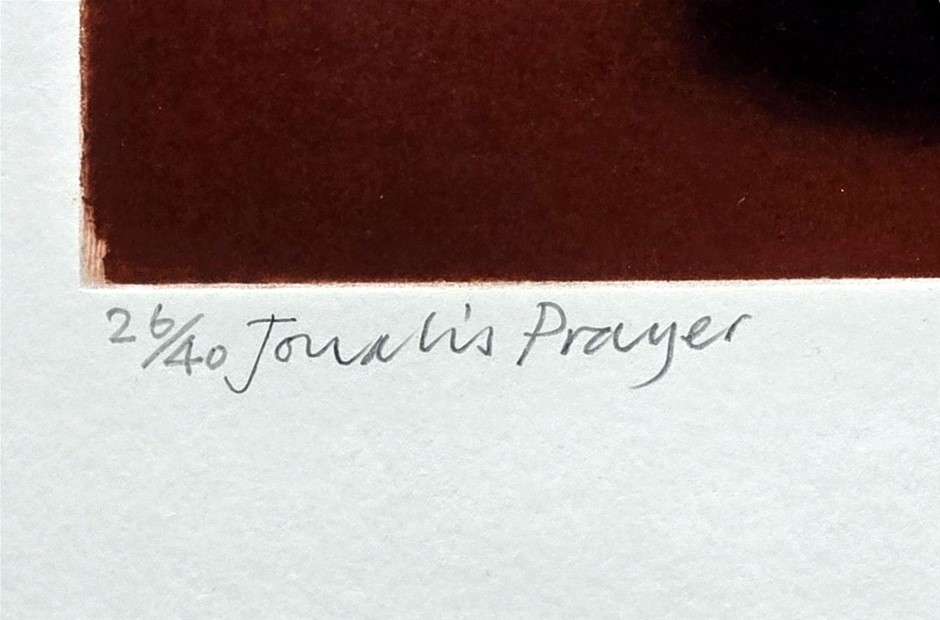 26/40 Jonah's Prayer